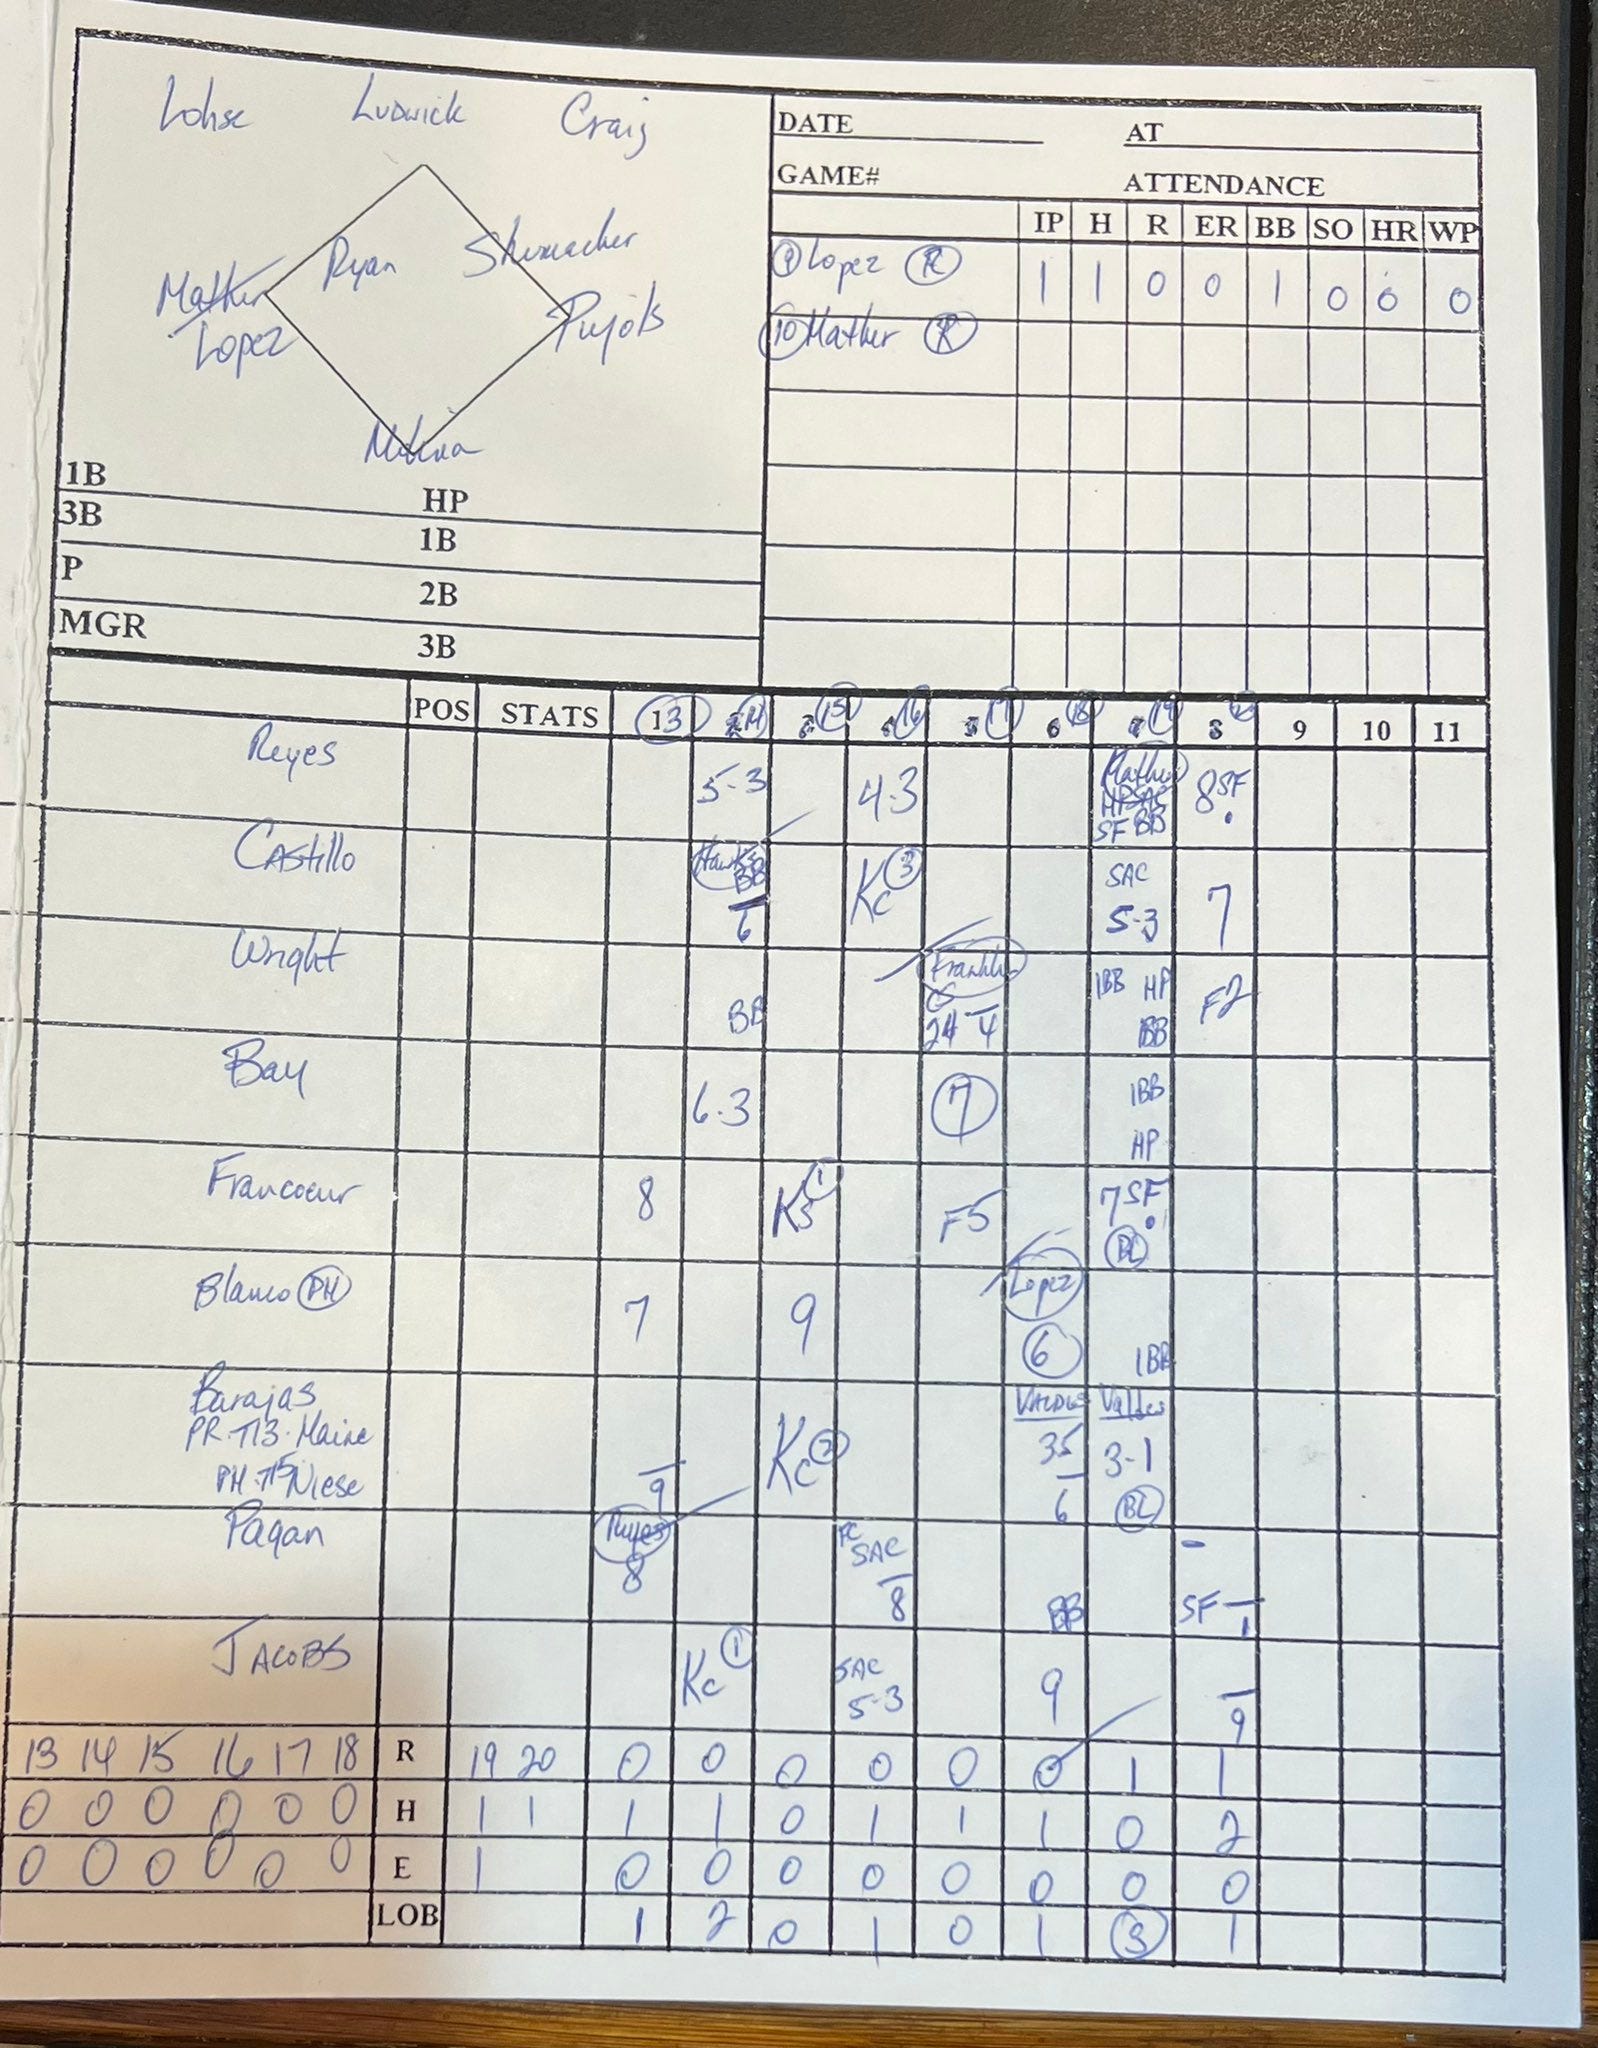 Lohse Ludwick Craig
Ryan Shumacher
Mather Pujols
Lopez
Molina
1B HP
3B 1B
P 2B
MGR 3B
DATE AT
GAME# ATTENDANCE
IP H R ER BB SO HR WP
9 Lopez R 1 1 0 0 1 0 0 0
10 Mather R
POS STATS 13 14 15 16 17 18 19 20 9 10 11
Reyes 5-3 4-3 Mather 8 SF
HP SAC
SF BB
Castillo BB 6 Kc 3 SAC 5-3 7
Wright BB Franklin 4 IBB HP F2
IBB
Bay 6-3 7 IBB
HP
Francoeur 8 Ks 1 F5 7 SF
BL
Blanco PH 7 9 Lopez 6 IBB
Barajas Valdes Valdes
PR-T13-Maine 9 Kc 2 35 3-1
PH-T15 Niese 6 BL
Pagan Reyes 8 FC SAC 8 BB SF 1
Jacobs Kc 1 SAC 5-3 9 9
13 14 15 16 17 18 R 19 20 0 0 0 0 0 0 1 1
0 0 0 0 0 0 H 1 1 1 1 0 1 1 1 0 2
0 0 0 0 0 0 E 1 0 0 0 0 0 0 0 0
LOB 1 2 0 1 0 1 3 1